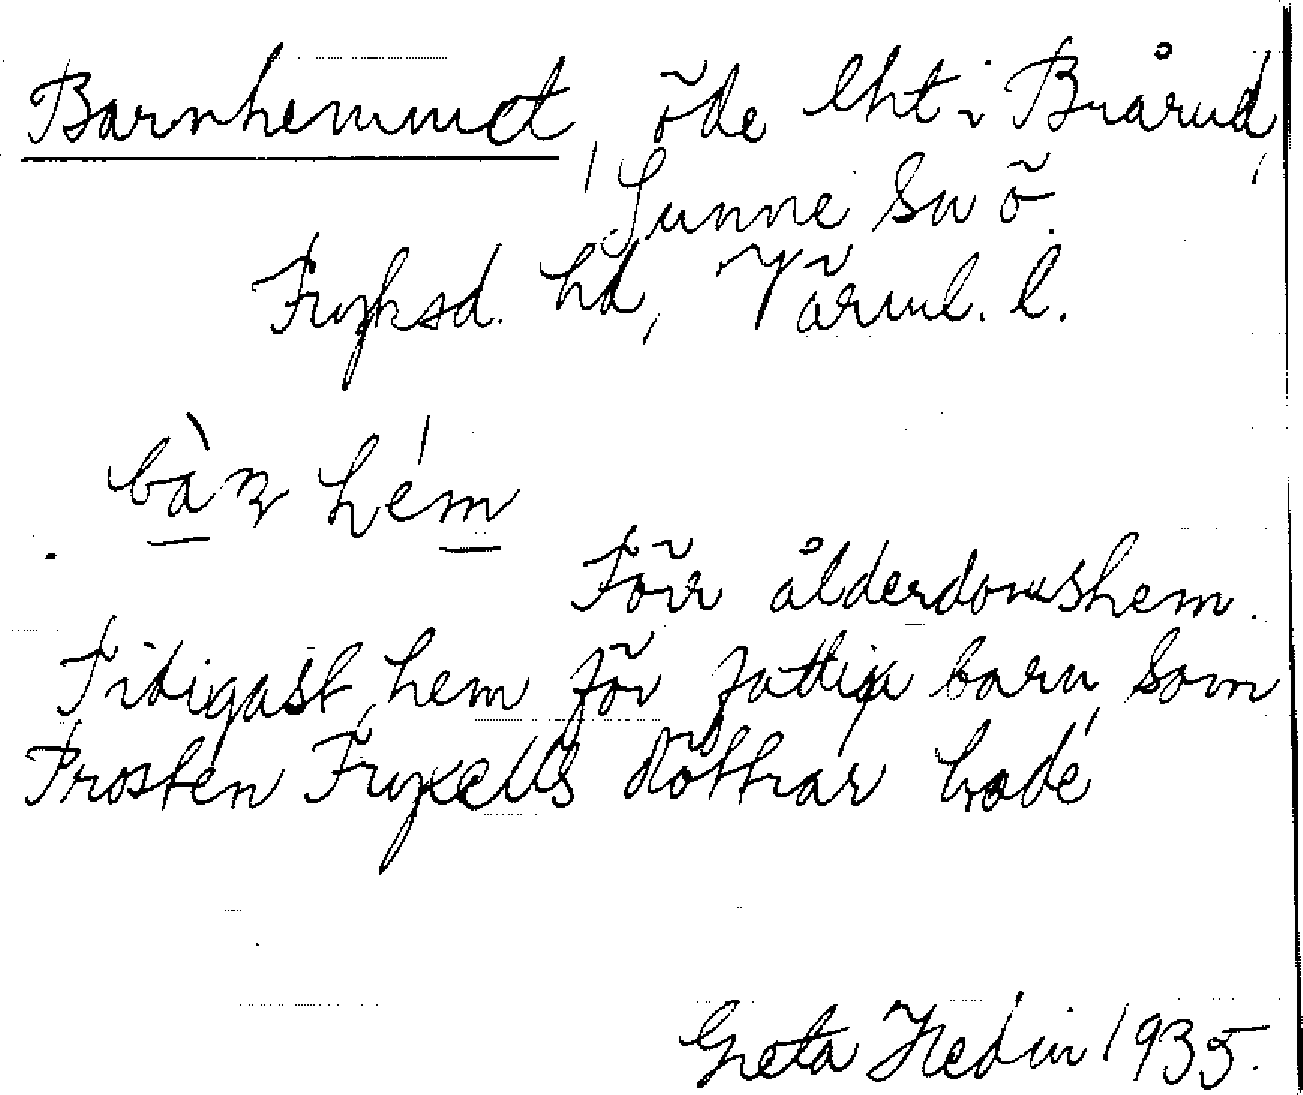 Barnhemmet, öde lht i Brårud,
Sunne sn ö.
Fryksd. hd, Värml. l.
bàn hém
Förr ålderdomshem.
Tidigast hem för fattiga barn, som
Prosten Fryxells döttrar hade
Greta Hedin 1935.